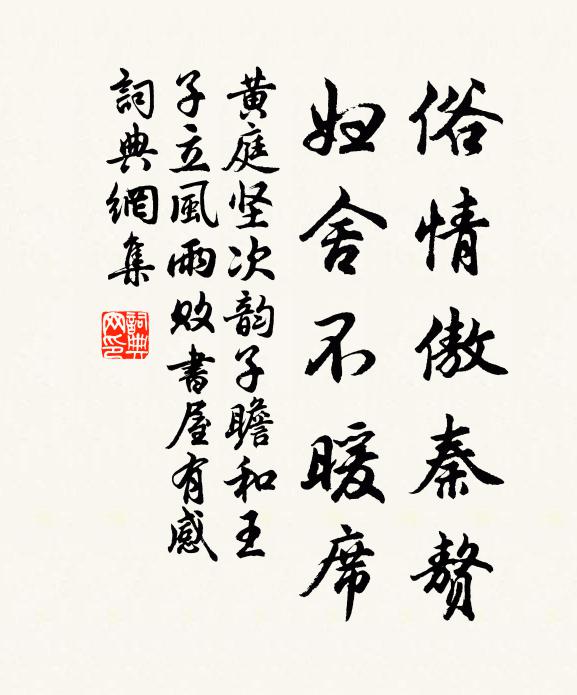 俗情傲秦赘
妇舍不暖席
黄庭坚次韵子瞻和王
子立風雨败書屋有感
詞典網集
詞典网印